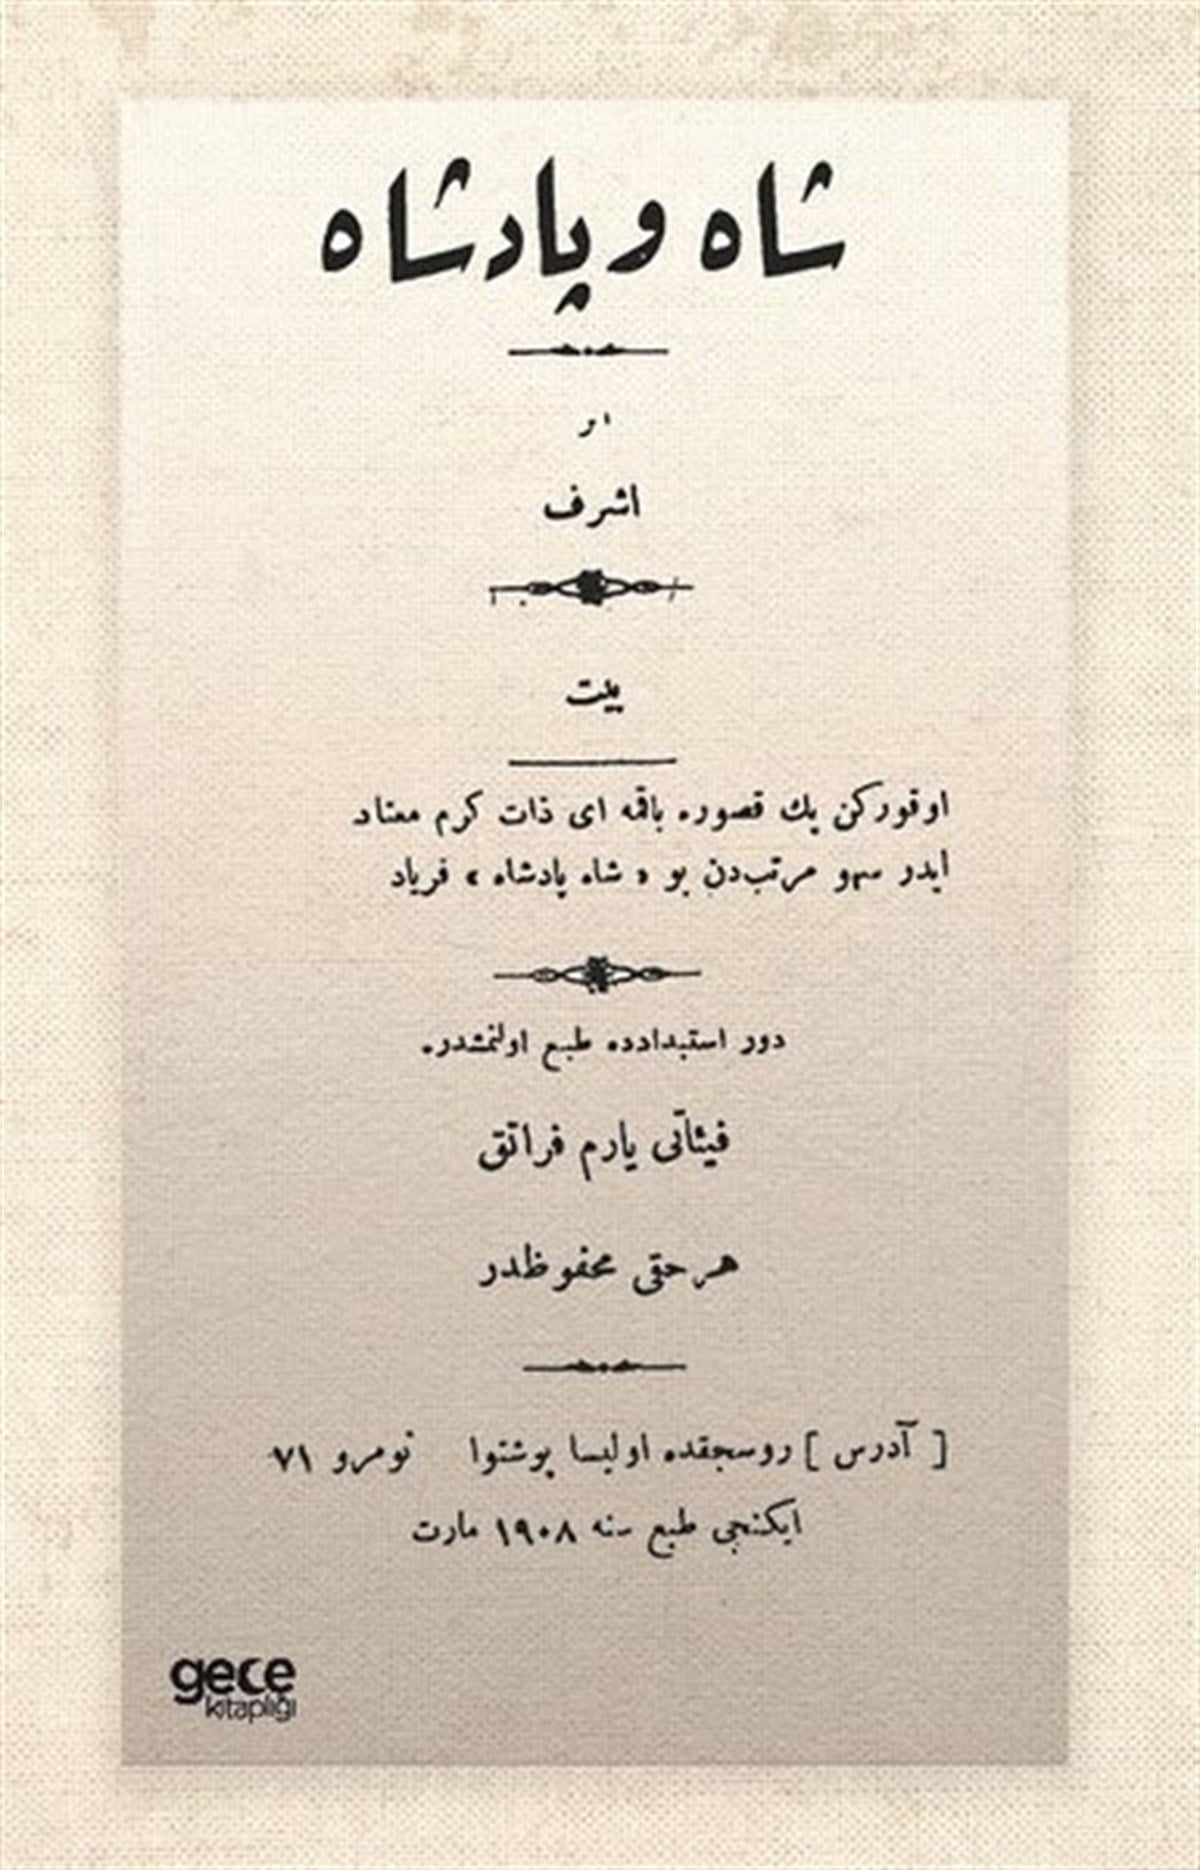 شاه و پادشاه
اثر
اشرف
بيت
اوقوركن پك قصوره باقمه اى ذات كرم معتاد
ايدر سهو مرتب‌دن بو « شاه پادشاه » فرياد
دور استبدادده طبع اولنمشدر.
فيئاتى يارم فرانقق
هر حقى محفوظدر
[ آدرس ] روسجقده اوليسا پوشتوا نومرو ٧١
ايكنجى طبع سنه ١٩٠٨ مارت
gece
kitaplığı